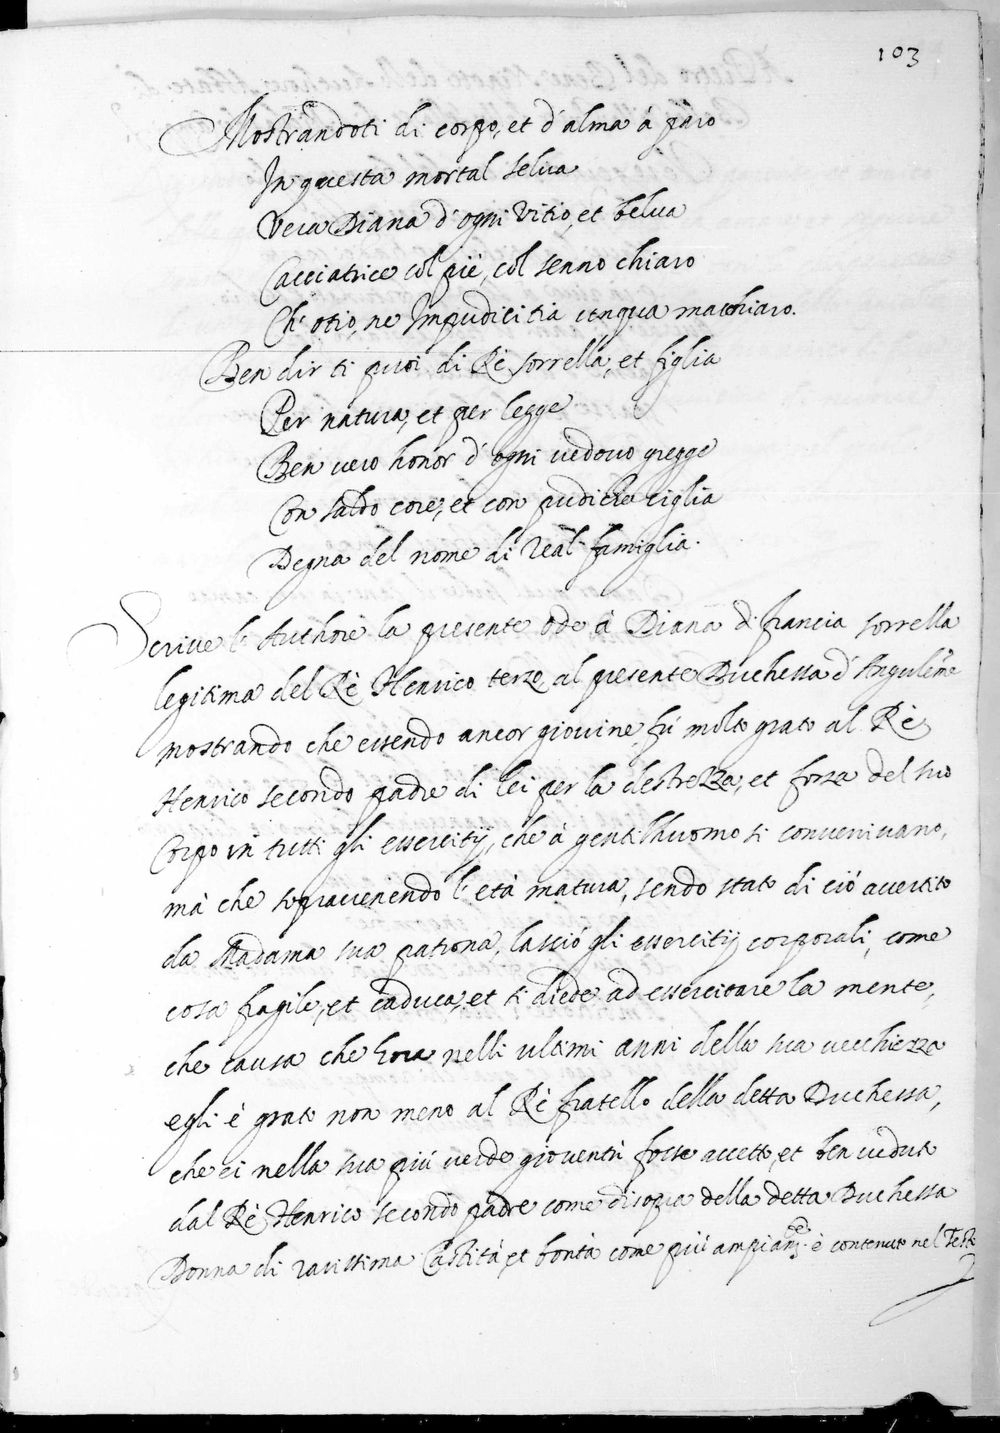 103
Mostrandoti di corpo, et d'alma à paro
In questa mortal selua
Vera Diana d'ogni vitio, et belua
Cacciatrice col piè, col senno chiaro
Ch'otio, ne Impudicitia unqua macchiaro.
Ben dir ti puoi di Rè sorrella, et figlia
Per natura, et per legge
Ben uero honor d'ogni uedouo gregge
Con saldo core, et con pudiche ciglia
Degna del nome di Real famiglia.
Scriue l'Authore la presente ode à Diana di francia sorrella
legitima del Rè Henrico terzo, al presente Duchessa d'Anguleme
mostrando che essendo ancor giouine fù molto grato al Rè
Henrico secondo padre di lei per la destrezza, et forza del suo
Corpo in tutti gli essercitij, che à gentilhuomo si conueniuano,
mà che soprauenendo l'età matura, sendo stato di ciò auertito
da Madama sua patrona, lasciò gli essercitij corporali, come
cosa fragile, et caduca, et si diede ad essercitare la mente,
che causa che hora nelli ultimi anni della sua uecchiezza
egli è grato non meno al Rè fratello della detta Duchessa,
che ei nella sua più uerde giouentù fosse accetto, et ben ueduto
dal Rè Henrico secondo padre come disopra della detta Duchessa
Donna di rarissima Castità, et bontà come più ampiam.te è contenuto nel Testo